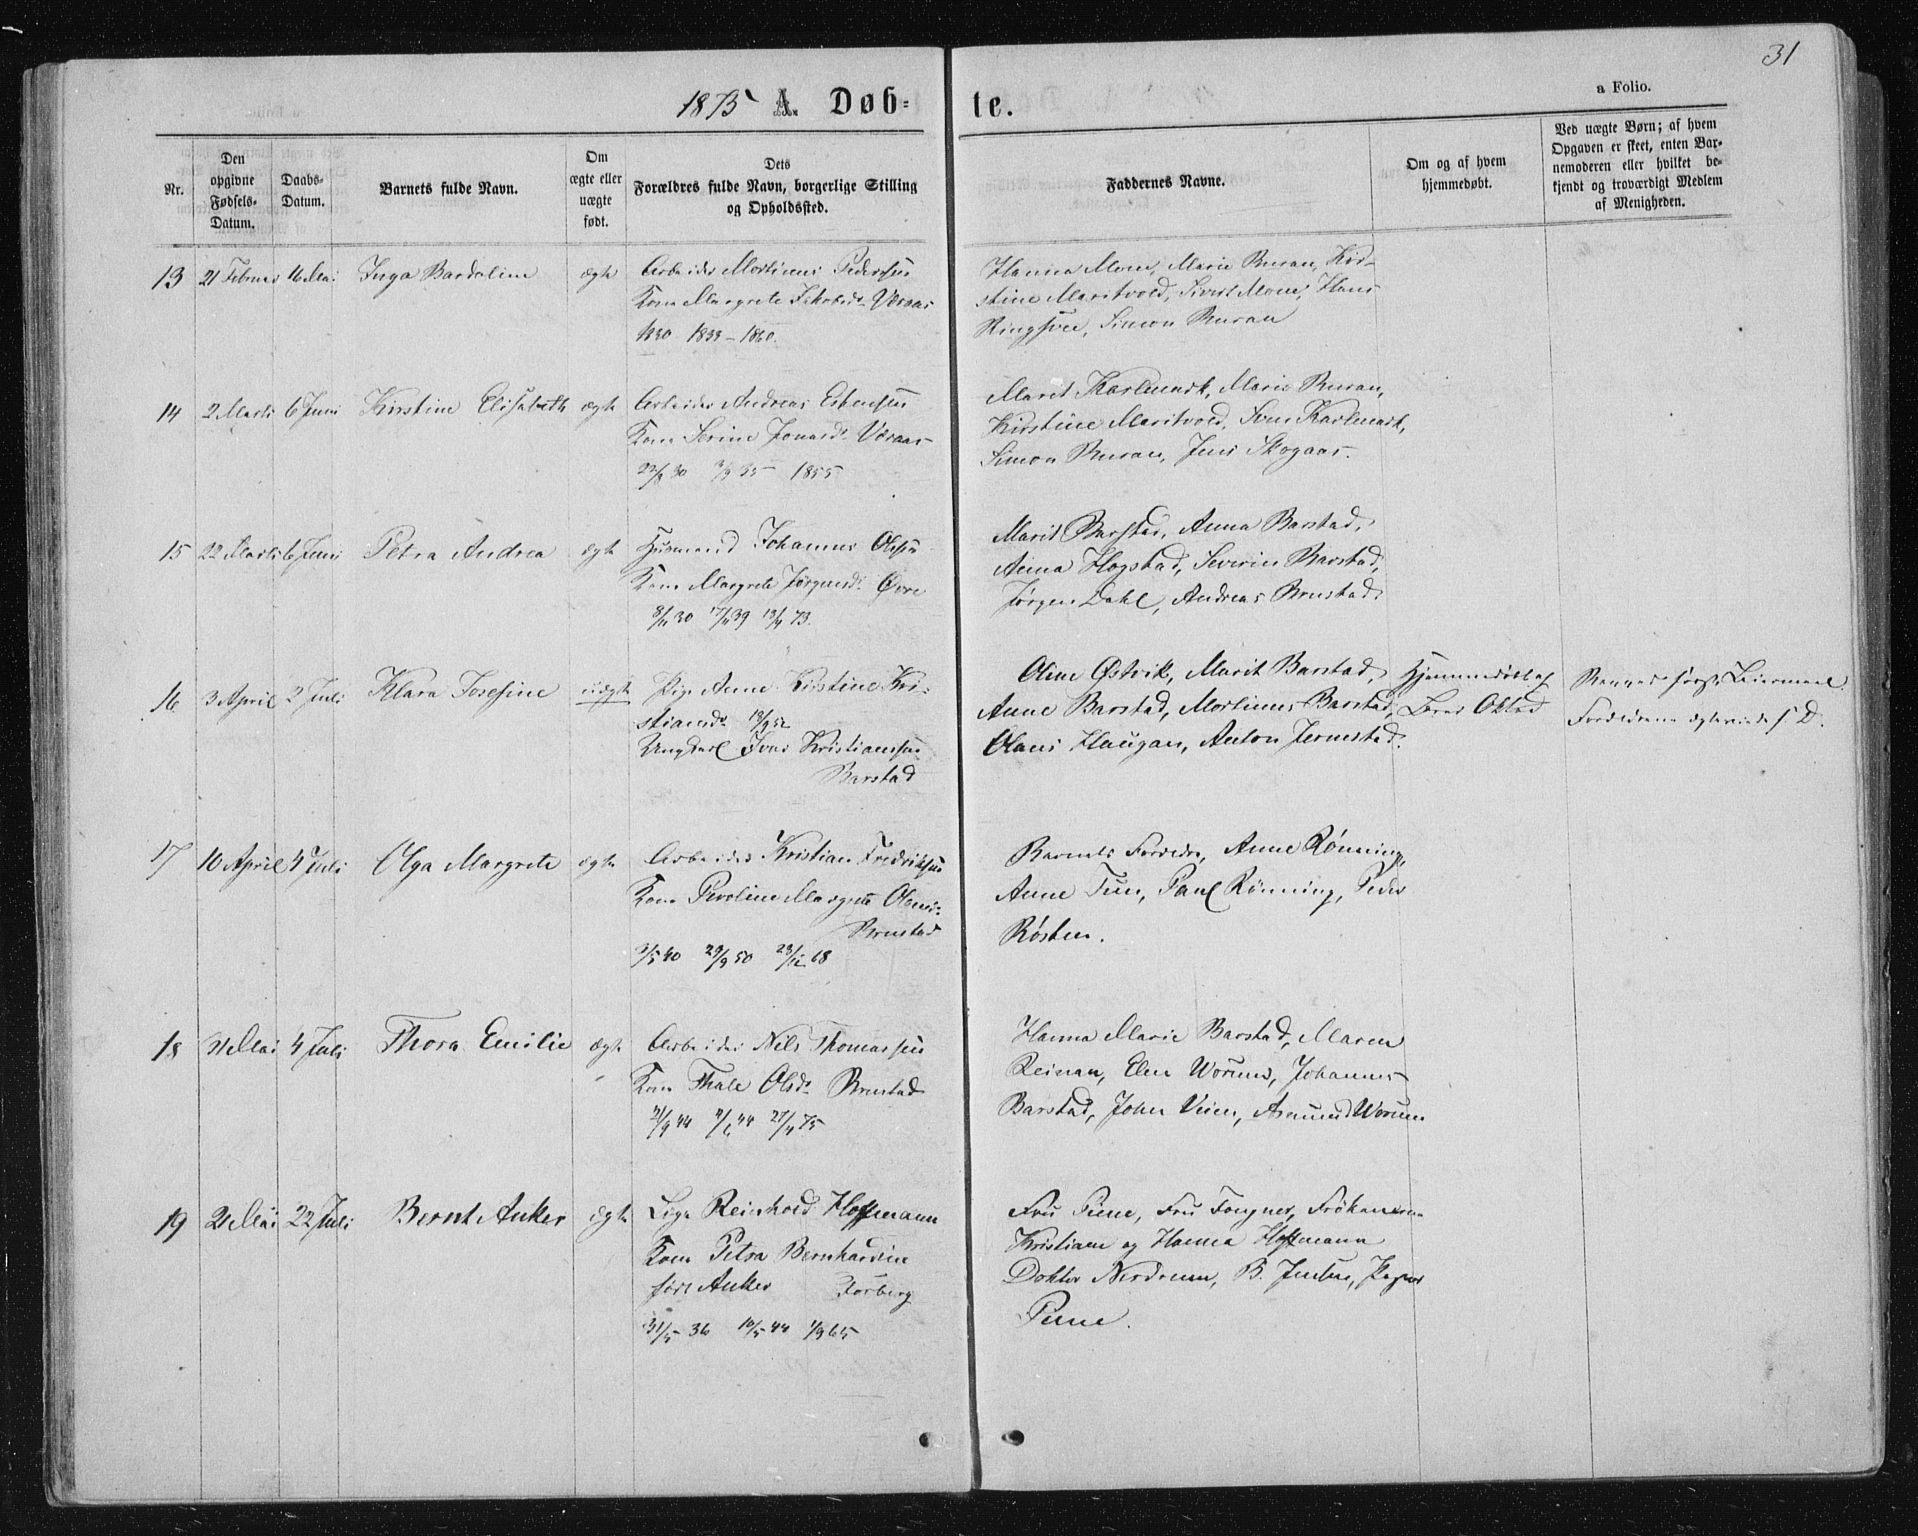 31
1875 A. Døbte.
a Folio.
Nr.
Den opgivne Fødsels-Datum.
Daabs-Datum.
Barnets fulde Navn.
Om ægte eller uægte født.
Dets Forældres fulde Navn, borgerlige Stilling og Opholdssted.
Faddernes Navne.
Om og af hvem hjemmedøbt.
Ved uægte Børn; af hvem
Opgaven er skeet, enten Bar-
nemoderen eller hvilket be-
kjendt og troværdigt Medlem
af Menigheden.
13 21 Februar 16 Mai Inga Bardoline ægte
Arbeider Mortinus Pedersen
Kone Margrete Væraas
1830 1833 - 1860.
Hanna Moen, Marie Buran, Kir-
stine Maritvold, Sivert Moen, Hans
Ringsvee, Simon Buran
14 2 Marts 6 Juni Kirstine Elisabeth ægte
Arbeider Andreas Estensen
Kone Serine Jonasdr Væraas
22/8 30 3/9 35 1855
Marit Karlmark, Marie Buran,
Kirstine Maritvold, Sven Karlmark,
Simon Buran, Jens Skogaas.
15 22 Marts 6 Juni Petra Andrea ægte
Husmand Johannes Olsen
Kone Margrete Jørgensdr Øvre
8/11 30 17/11 39 13/4 73.
Marit Barstad, Anna Barstad,
Anna Hogstad, Severin Barstad,
Jørgen Dahl, Andreas Brustad
16 3 April 2 Juli Klara Josefine uægte
Pige Anne Kirstine Kri-
stiansdr 18/9 52
Ungkarl Iver Kristiansen
Barstad
Oline Østvik, Marit Barstad,
Anne Barstad, Mortinus Barstad,
Olaus Haugan, Anton Jermstad.
Hjemmedøbt af
Lærer Okstad
første Leiermaal.
Forældrene ægteviede s. D.
17 10 April 4 Juli Olga Margrete ægte
Arbeider Kristian Fredriksen
Kone Peroline Margrete Olausdr
Brustad
3/5 40 29/9 50 28/12 68
Barnets Forældre, Anne Rønning,
Anne Tuen, Paul Rønning, Peder
Røsten.
18 Mai 4 Juli Thora Emilie ægte
Arbeider Nils Thomassen
Kone Thale Olsdr Brustad
21/9 44 44 27/4 75
Hanna Marie Barstad, Maren
Reinan, Elen Worum, Johannes
Barstad, John Veien, Asmund Worum
19 21 Mai 22 Juli Bernt Anker ægte
Reinhold Hoffmann
Kone Petra Bernhardine
født Anker Forberg
31/5 36 10/5 44 1/9 65
Fru Piene, Fru Fougner, Frøknerne
Kristiane og Hanna Hoffmann
Doktor Nerdrum, B. Jenssen,
Piene.